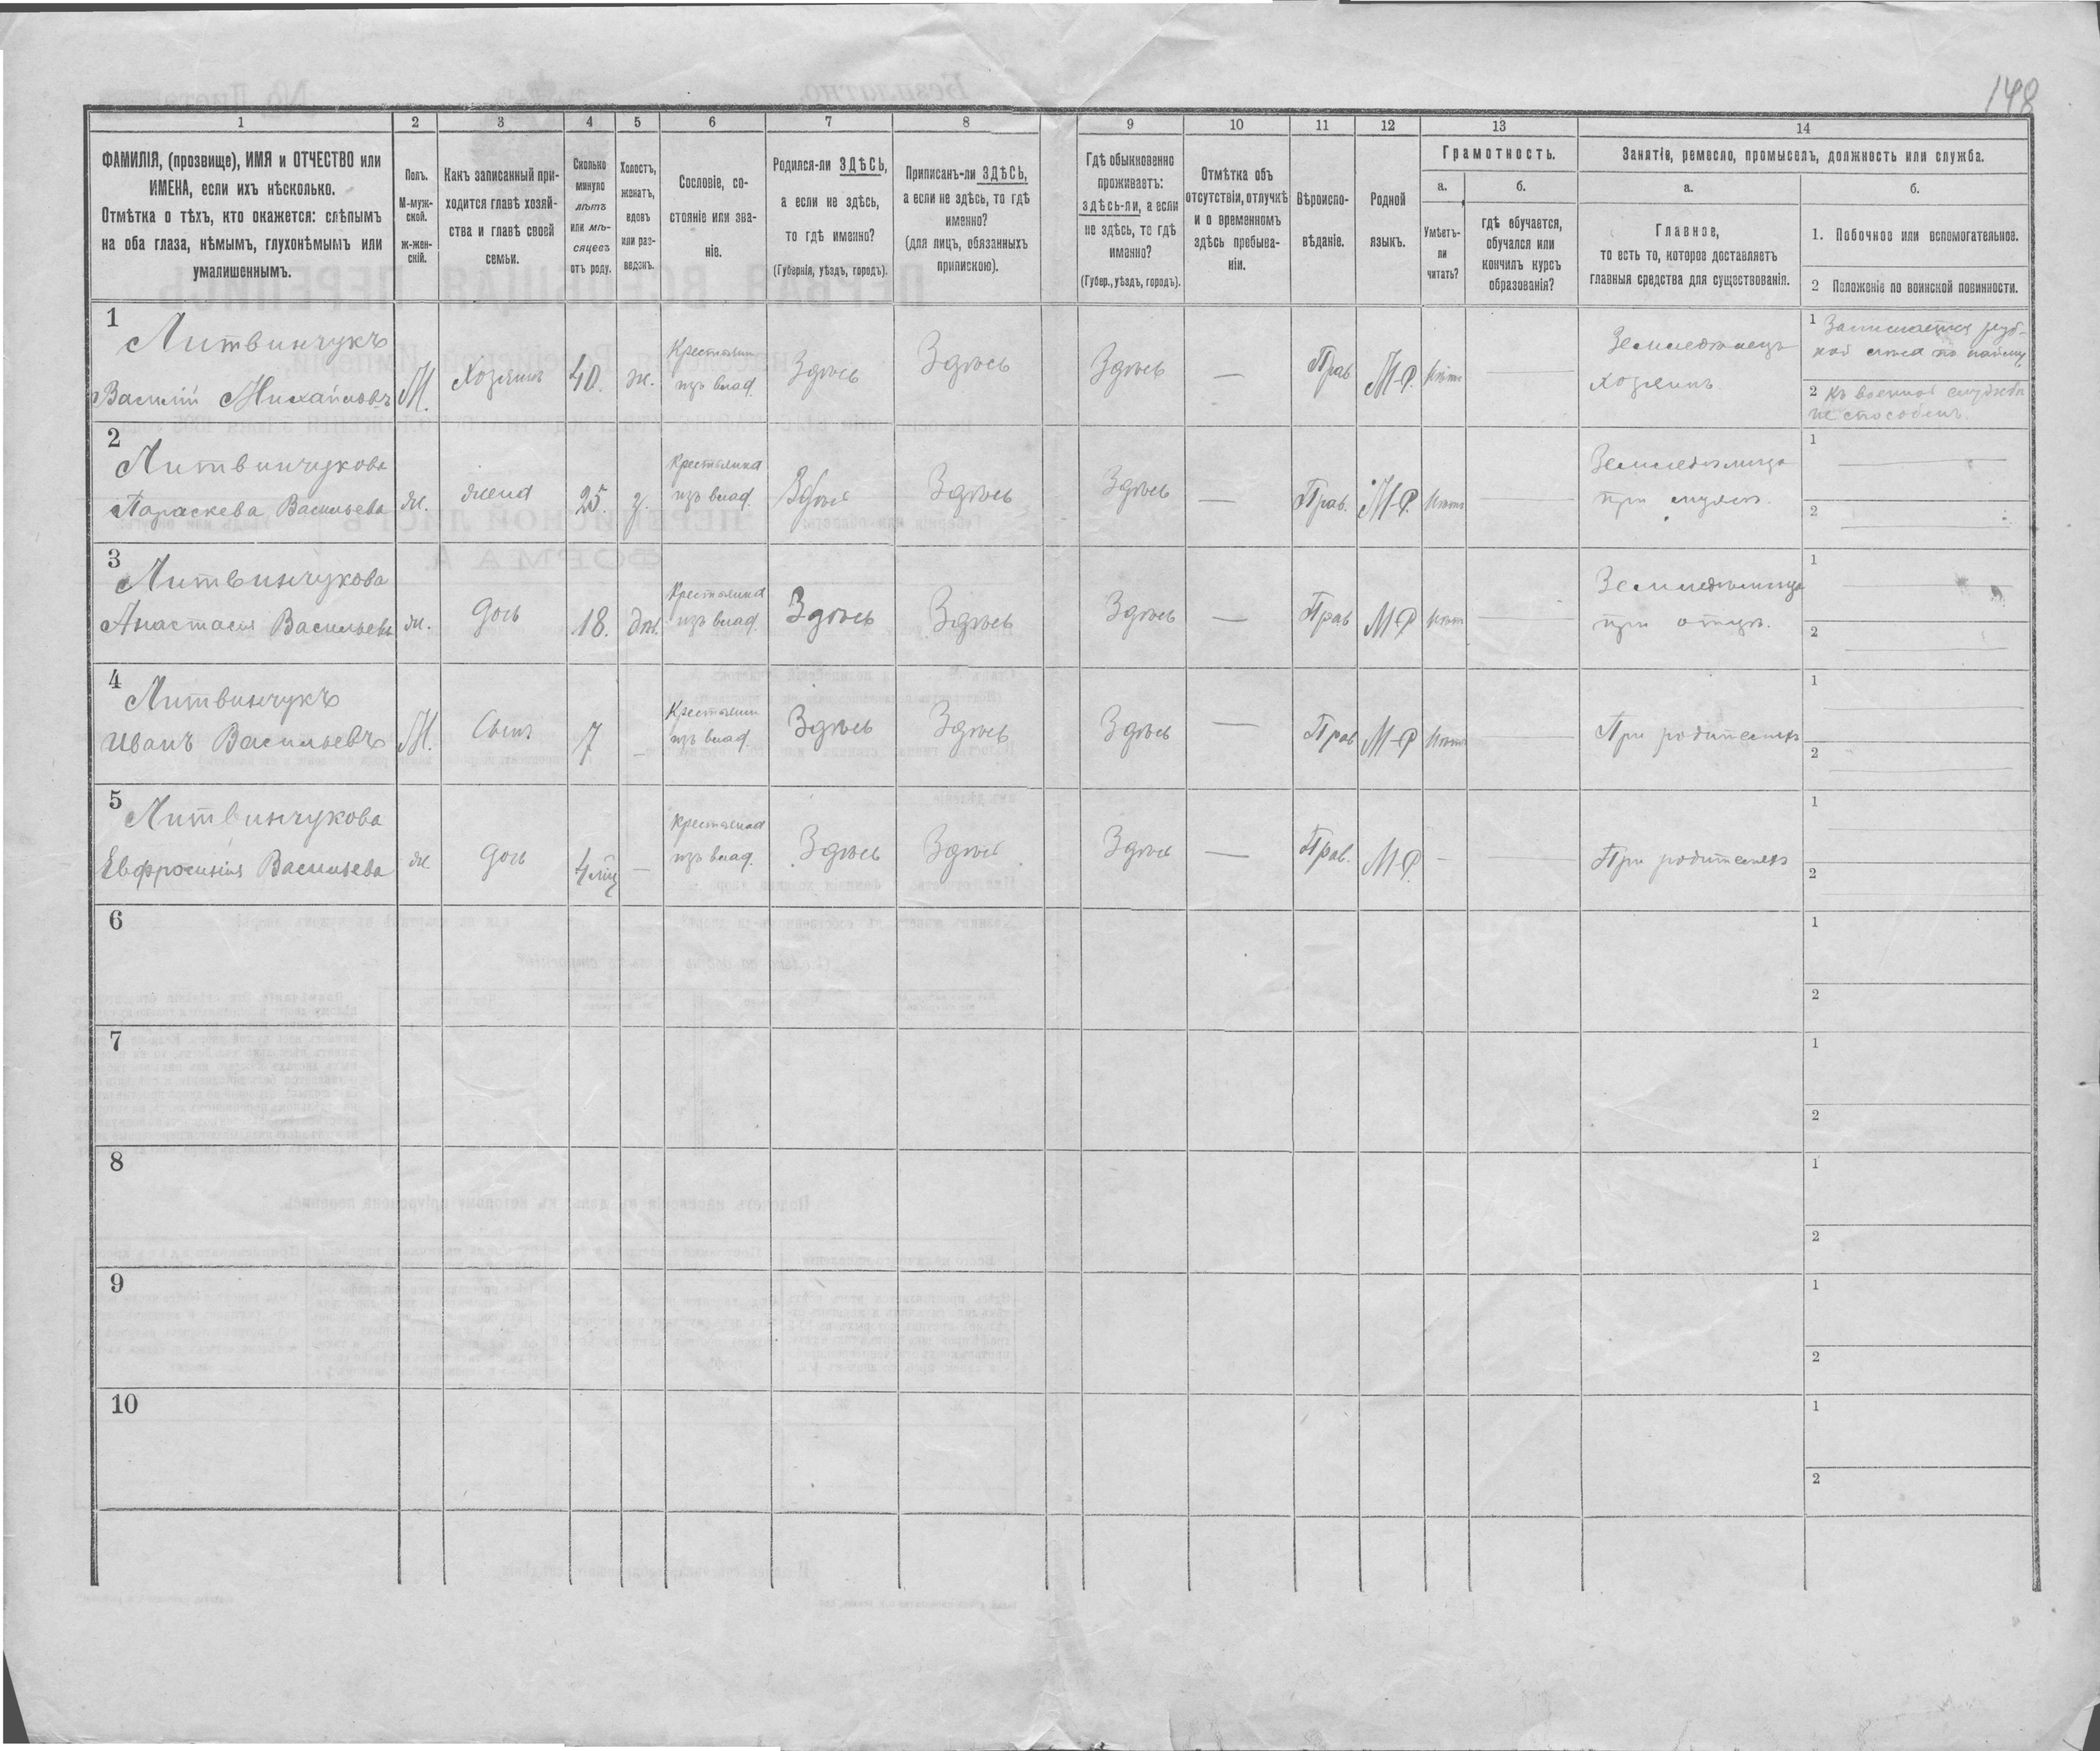 148
1 2 3 4 5 6 7 8 9 10 11 12 13 14
ФАМИЛІЯ, (прозвище), ИМЯ и ОТЧЕСТВО или
ИМЕНА, если ихъ нѣсколько.
Отмѣтка о тѣхъ, кто окажется: слѣпымъ
на оба глаза, нѣмымъ, глухонѣмымъ или
умалишеннымъ.
Полъ.
М-муж-
ской.
ж-жен-
скій.
Какъ записанный при-
ходится главѣ хозяй-
ства и главѣ своей
семьи.
Сколько
минуло
лѣтъ
или мѣ-
сяцевъ
отъ роду.
Холостъ,
женатъ,
вдовъ
или раз-
веденъ.
Сословіе, со-
стояніе или зва-
ніе.
Родился-ли ЗДѢСЬ,
а если не здѣсь,
то гдѣ именно?
(Губернія, уѣздъ, городъ).
Приписанъ-ли ЗДѢСЬ,
а если не здѣсь, то гдѣ
именно?
(для лицъ, обязанныхъ
припискою).
Гдѣ обыкновенно
проживаетъ:
здѣсь-ли, а если
не здѣсь, то гдѣ
именно?
(Губер., уѣздъ, городъ).
Отмѣтка объ
отсутствіи, отлучкѣ
и о временномъ
здѣсь пребыва-
ніи.
Вѣроиспо-
вѣданіе.
Родной
языкъ.
Грамотность.
а.
Умѣетъ-
ли
читать?
б.
гдѣ обучается,
обучался или
кончилъ курсъ
образованія?
Занятіе, ремесло, промыселъ, должность или служба.
а.
Главное,
то есть то, которое доставляетъ
главныя средства для существованія.
б.
1. Побочное или вспомогательное.
2 Положеніе по воинской повинности.
1
Литвинчукъ
Василій Михайловъ
М.
Хозяинъ
40.
ж.
Крестьянин
изъ влад.
Здѣсь
Здѣсь
Здѣсь
—
Прав
М-Р.
Нѣтъ
—
Земледѣлецъ
хозяинъ.
1
2 Къ военной службѣ
не способенъ.
2
Литвинчукова
Параскева Васильева
ж.
жена
25.
з.
Крестьянка
изъ влад.
Здѣсь
Здѣсь
Здѣсь
—
Прав.
М-Р.
Нѣтъ
—
Земледѣлица
при мужѣ.
1 —
2 —
3
Литвинчукова
Анастасія Васильева
ж.
дочь
18.
дѣв.
Крестьянка
изъ влад.
Здѣсь
Здѣсь
Здѣсь
—
Прав
М-Р
Нѣтъ
—
Земледѣлица
при отцѣ.
1 —
2 —
4
Литвинчукъ
Иванъ Васильевъ
М.
Сынъ
7
—
Крестьянин
изъ влад.
Здѣсь
Здѣсь
Здѣсь
—
Прав
М-Р
Нѣтъ
—
При родителяхъ
1 —
2 —
5
Литвинчукова
Евфросинія Васильева
ж.
дочь
4 мѣц
—
Крестьянка
изъ влад.
Здѣсь
Здѣсь
Здѣсь
—
Прав.
М-Р.
-
—
При родителяхъ
1 —
2 —
6
1
2
7
1
2
8
1
2
9
1
2
10
1
2